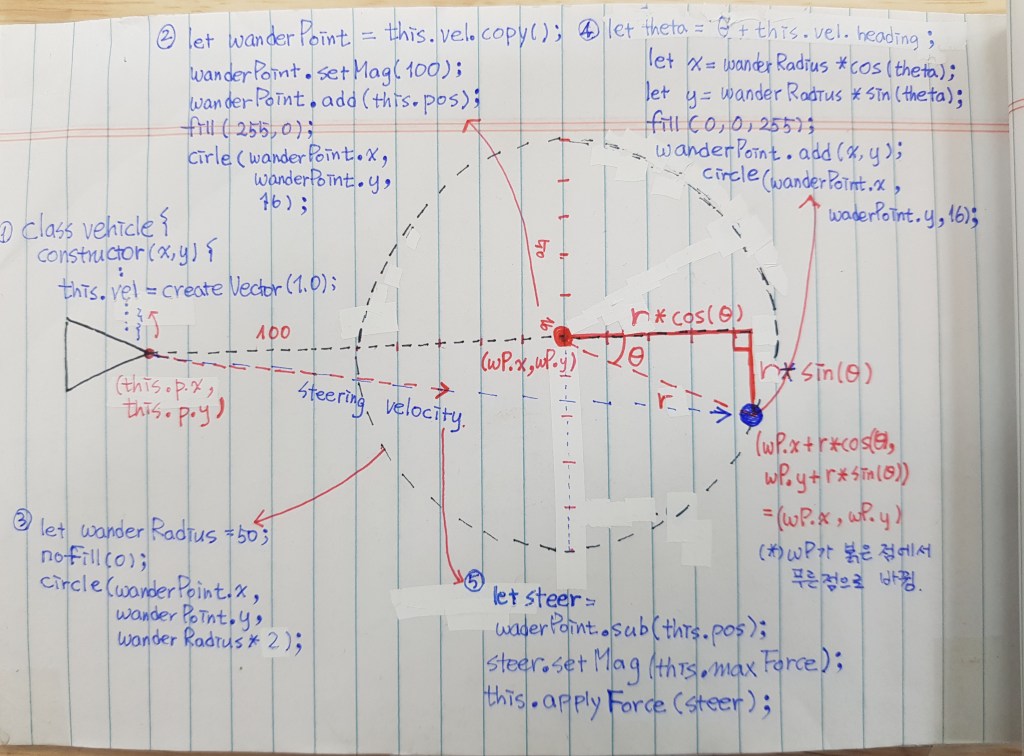 ① class vehicle {
constructor(x,y) {
this.vel = createVector(1.0);
② let wanderPoint = this.vel.copy();
wanderPoint.setMag(100);
wanderPoint.add(this.pos);
fill(255,0);
cirle(wanderPoint.x,
wanderPoint.y,
16);
④ let theta = θ + this.vel.heading;
let x = wanderRadius *cos(theta);
let y = wander Radius * sin(theta);
fill(0,0,255);
wanderPoint.add(x,y);
circle(wanderPoint.x,
waderPoint.y,16);
100
r*cos(θ)
(wP.x, wP.y)
θ
r
r* sin(θ)
(this.p.x,
this.p.y)
steering velocity.
(wP.x+r*cos(θ),
wP.y+r*sin(θ))
=(wP.x, wP.y)
(*) wP가 붉은 점에서
푸른점으로 바뀜.
③ let wander Radius =50;
nofill(0);
circle(wanderPoint.x,
wanderPoint.y,
wander Radius* 2);
⑤ let steer =
waderPoint.sub(this.pos);
steer.setMag(this.maxForce);
this.applyForce(steer);